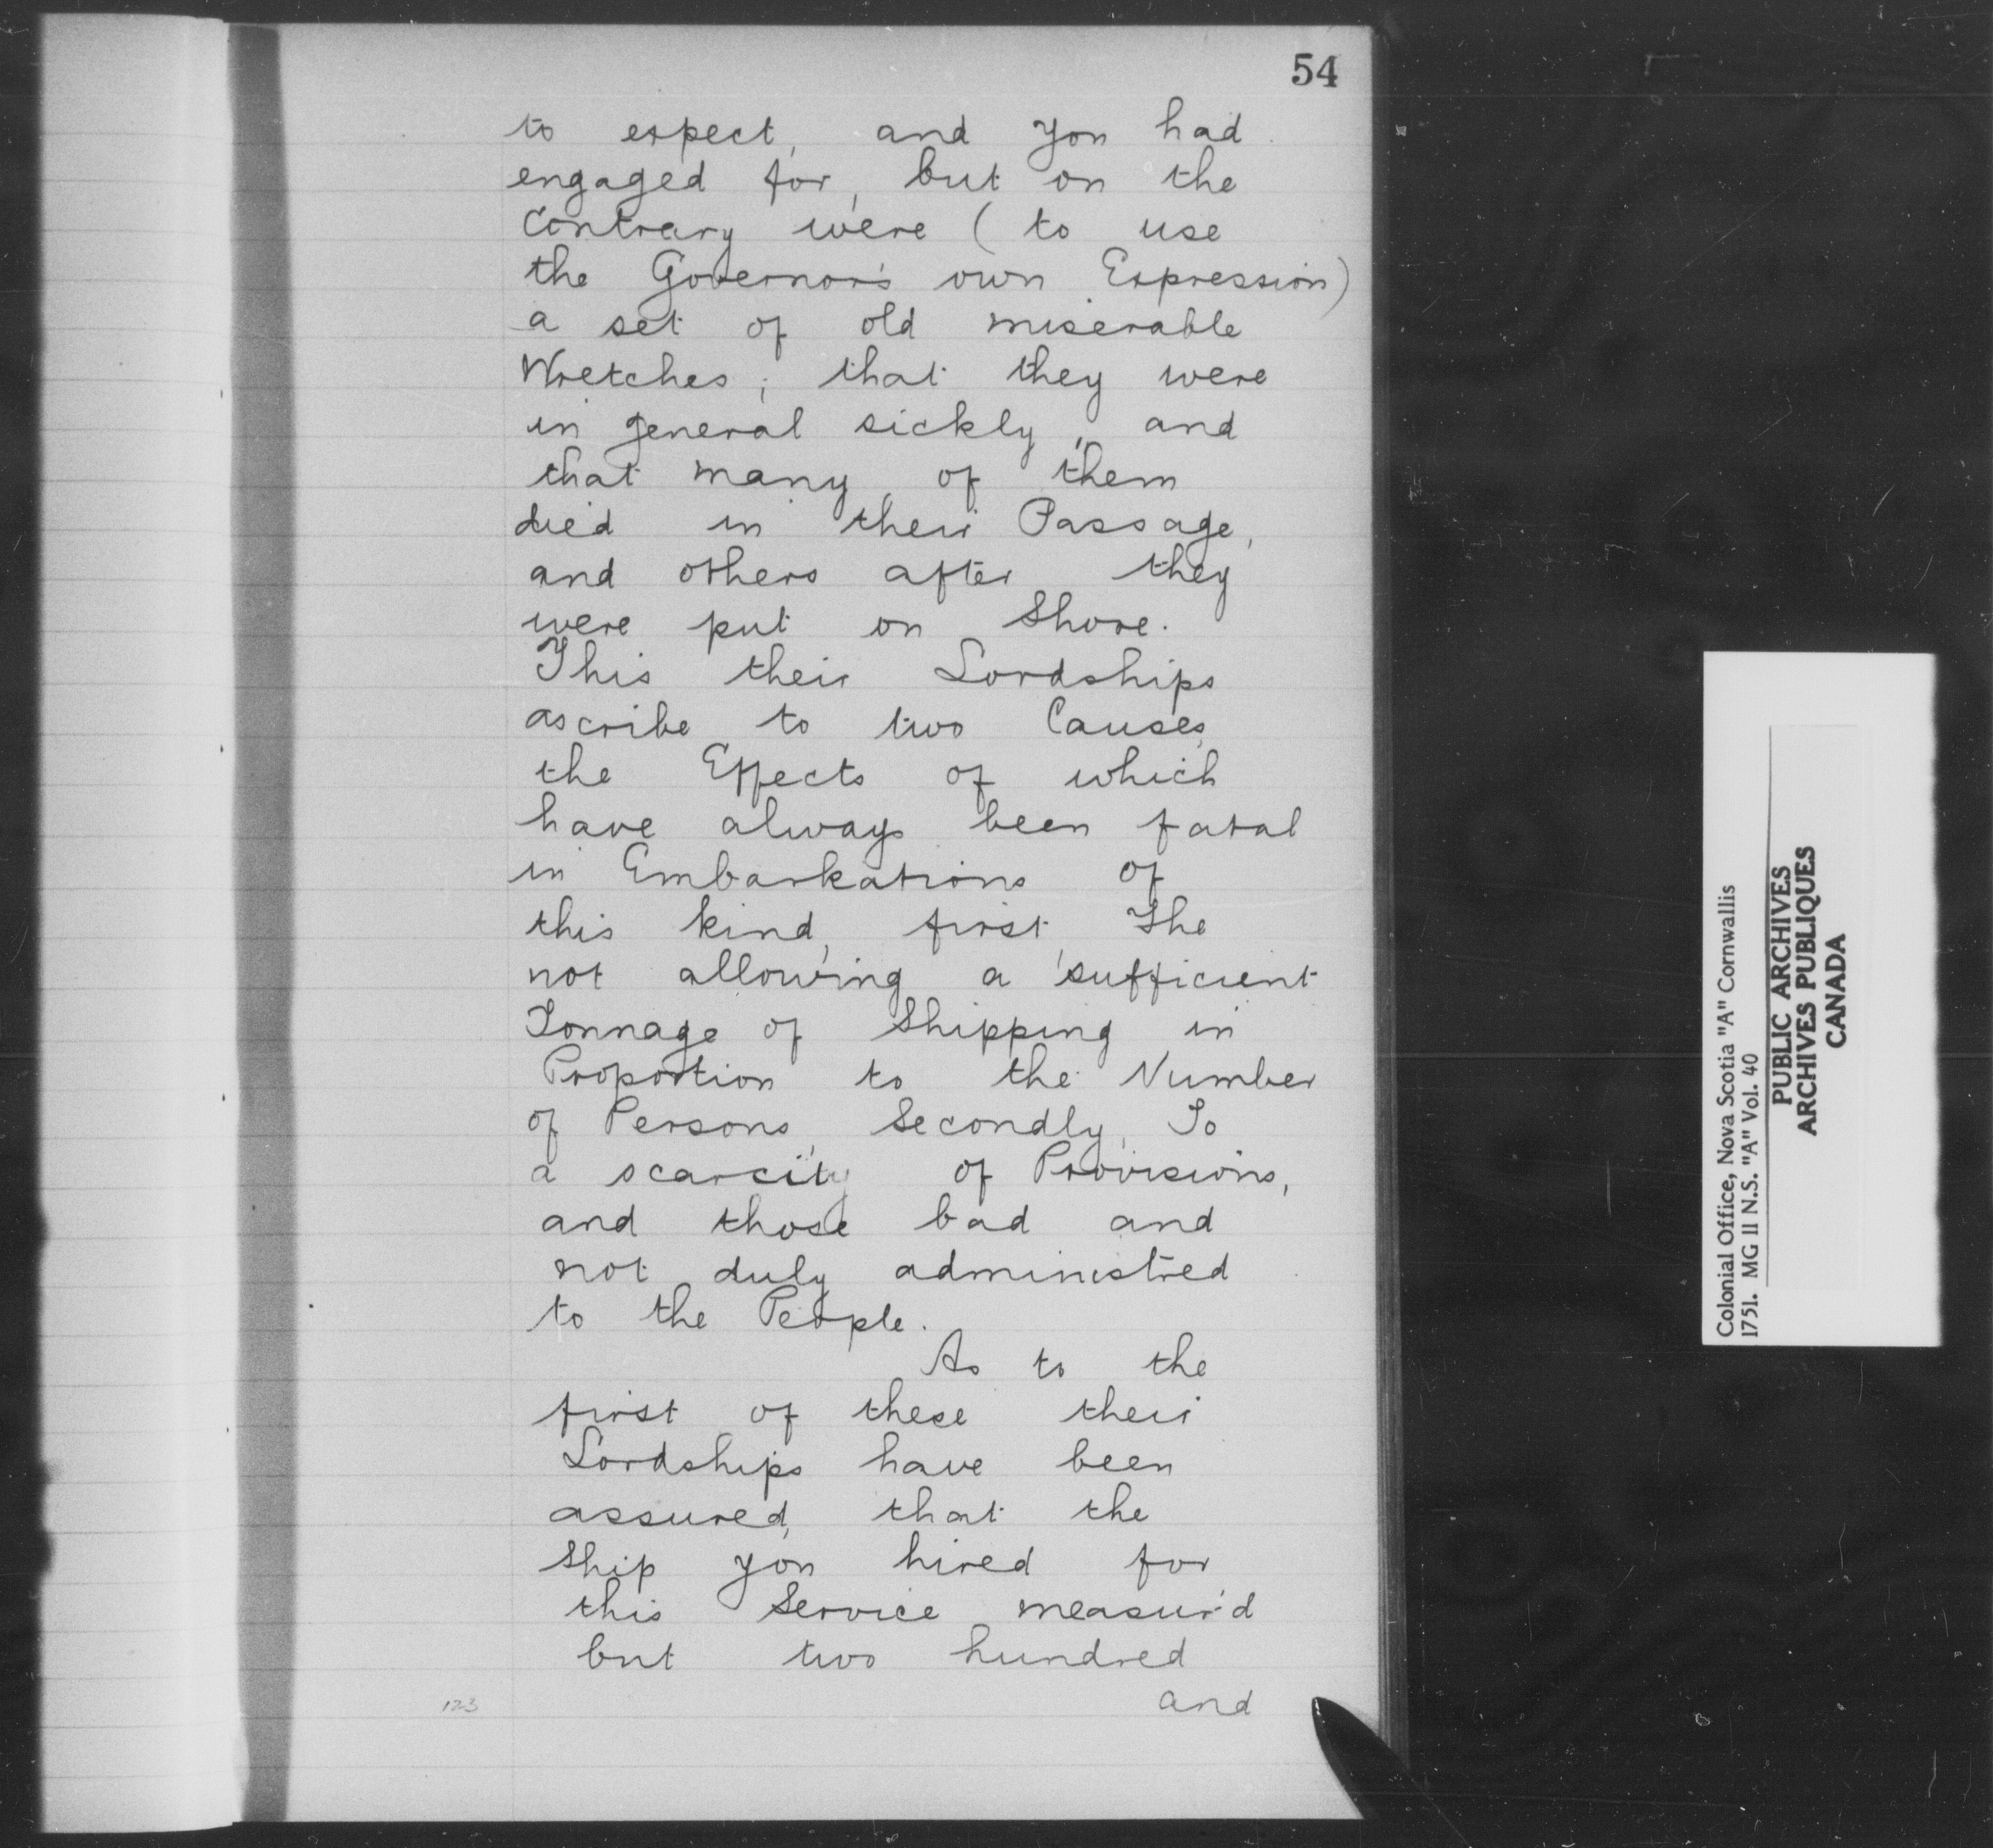 54
to expect, and you had
engaged for, but on the
Contrary were (to use
the Governor's own Expression)
a set of old miserable
Wretches; that they were
in general sickly, and
that many of them
died in their Passage,
and others after they
were put on Shore.
This their Lordships
ascribe to two Causes,
the Effects of which
have always been fatal
in Embarkations of
this kind, first, The
not allowing a sufficient
Tonnage of Shipping in
Proportion to the Number
of Persons, Secondly, To
a scarcity of Provisions,
and those bad and
not duly administred
to the People.
As to the
first of these their
Lordships have been
assured, that the
Ship you hired for
this Service measur'd
but two hundred
and
123
Colonial Office, Nova Scotia "A" Cornwallis
1751. MG II N.S. "A" Vol. 40
PUBLIC ARCHIVES
ARCHIVES PUBLIQUES
CANADA